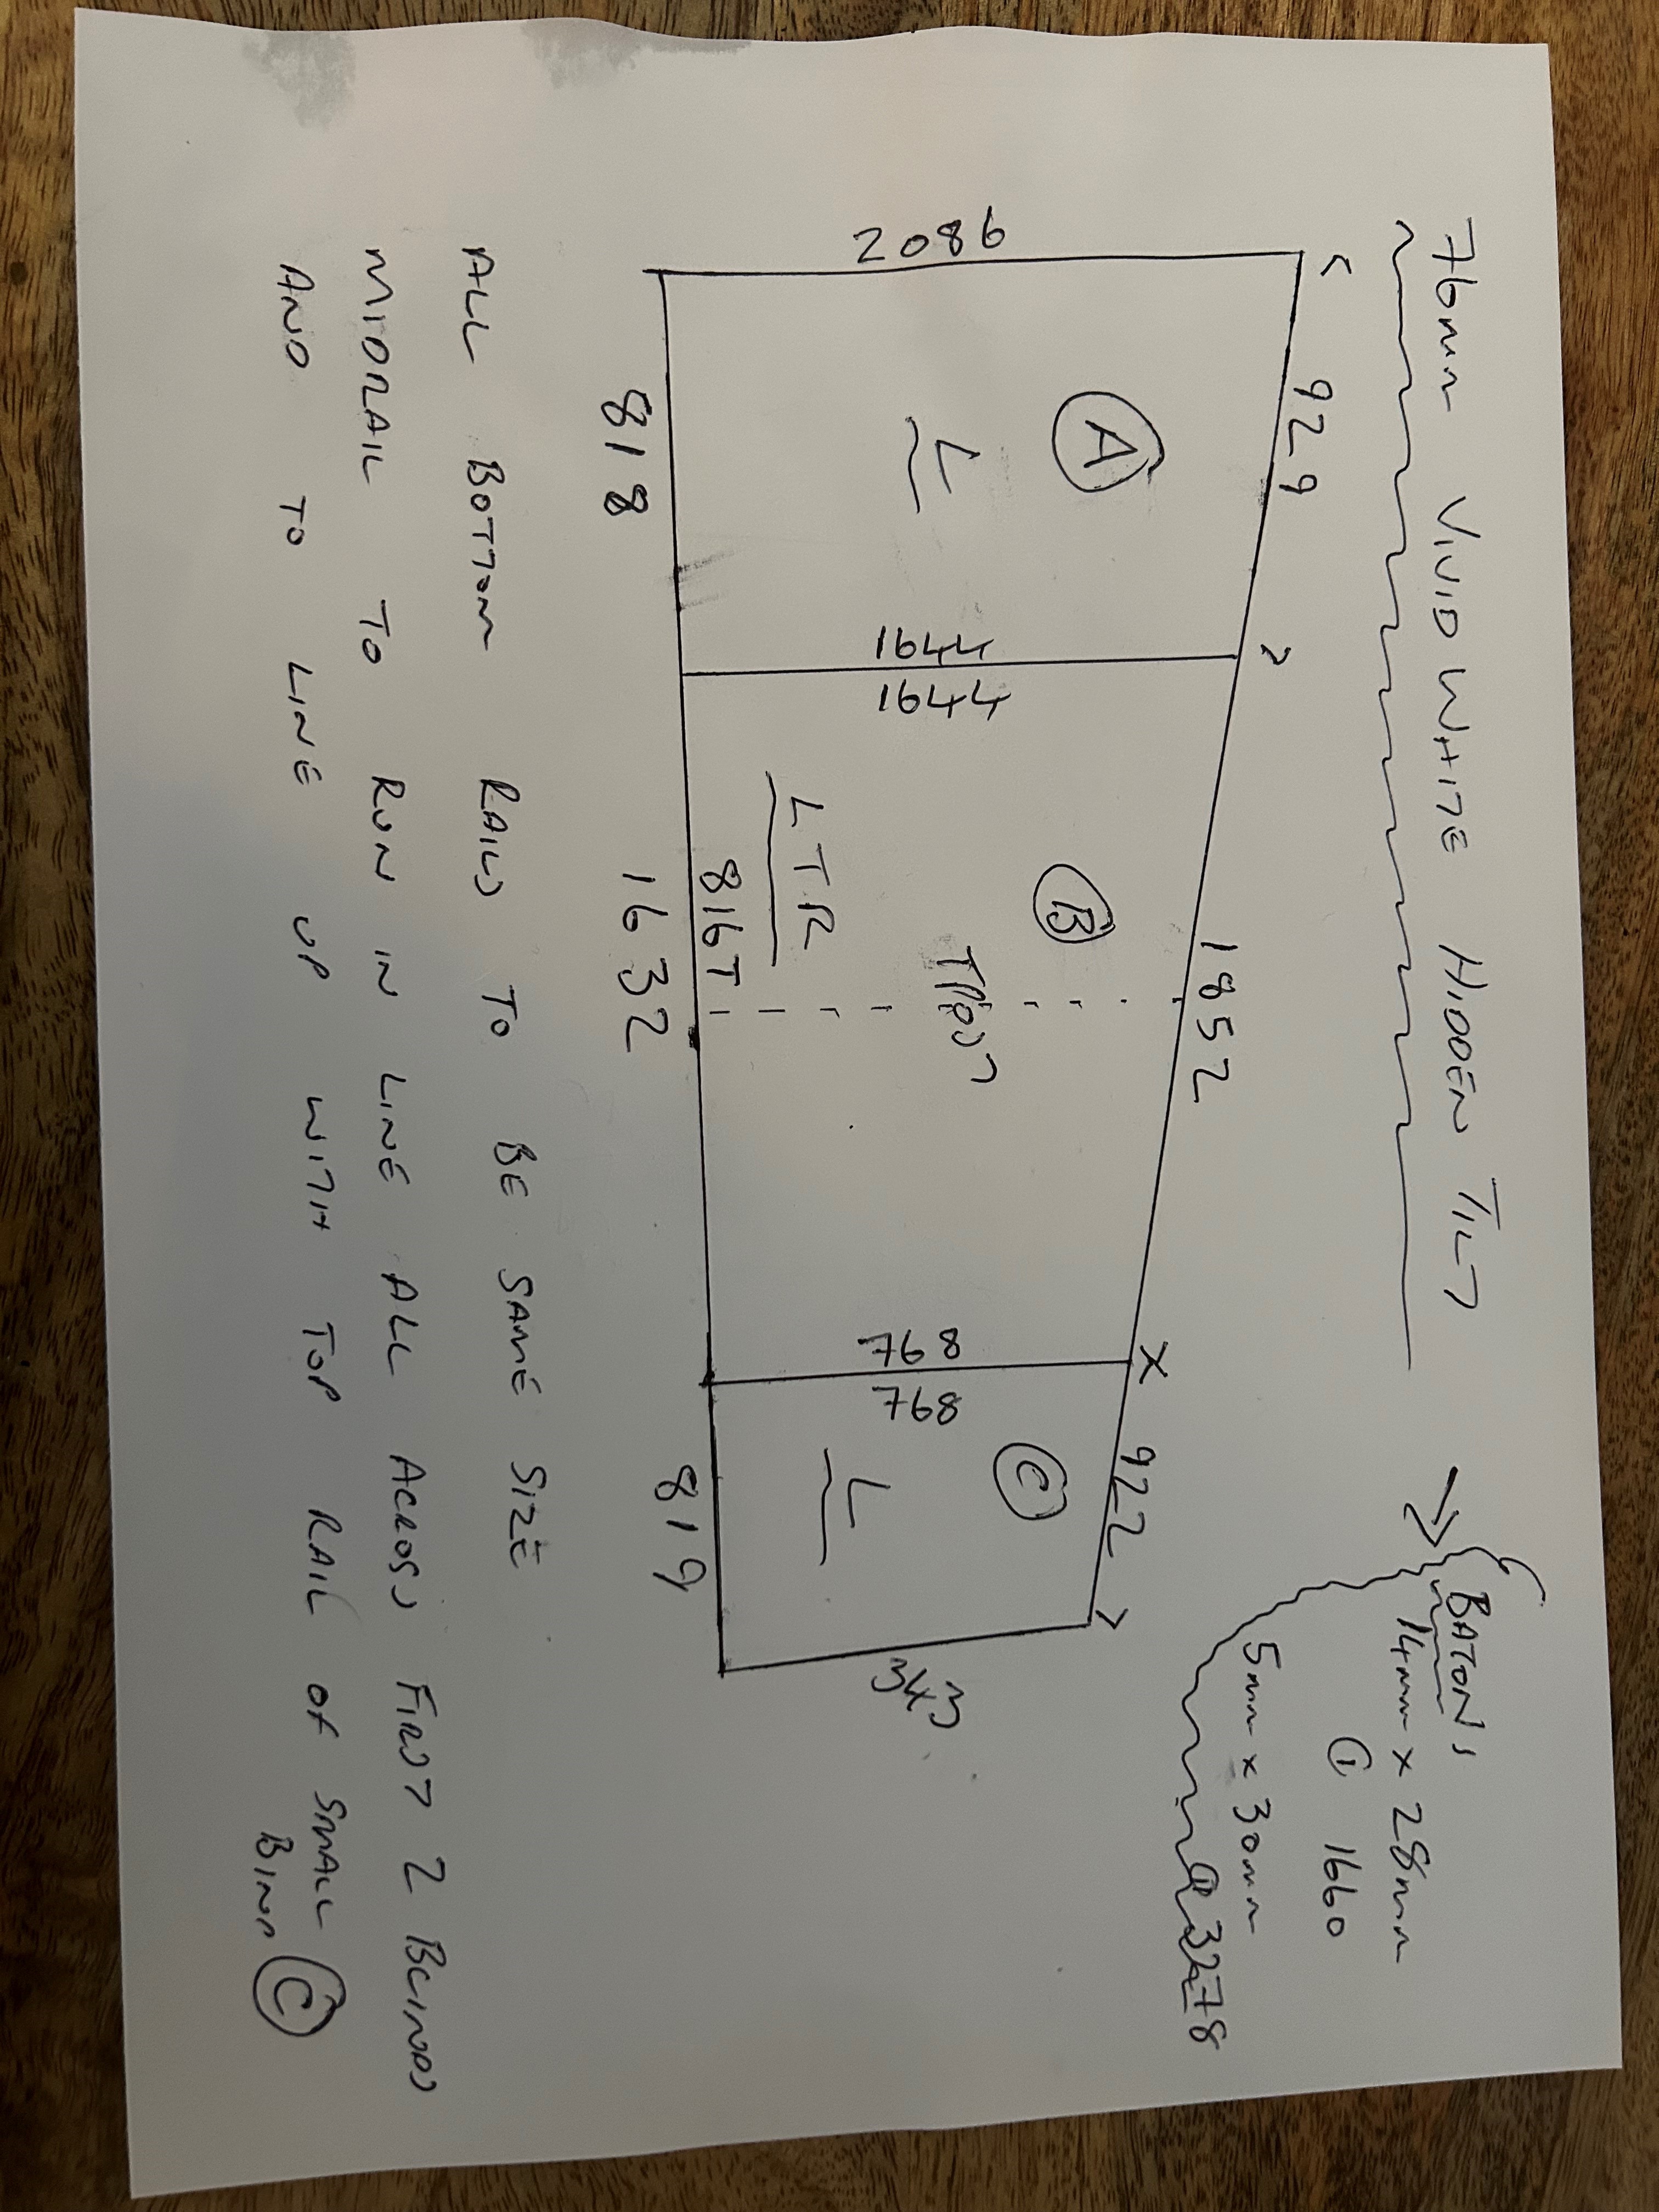 76mm VIVID WHITE HIDDEN TILT
BATONS
14mm x 28mm
① 1660
5mm x 30mm
① 3278
< 929 > 1852 X 922 >
A
L
2086
1644
1644
B
TPOST
LTR
816T
768
768
C
L
343
818 1632 819
ALL BOTTOM RAILS TO BE SAME SIZE
MIDRAIL TO RUN IN LINE ALL ACROSS FIRST 2 BLINDS
AND TO LINE UP WITH TOP RAIL OF SMALL
BIND C